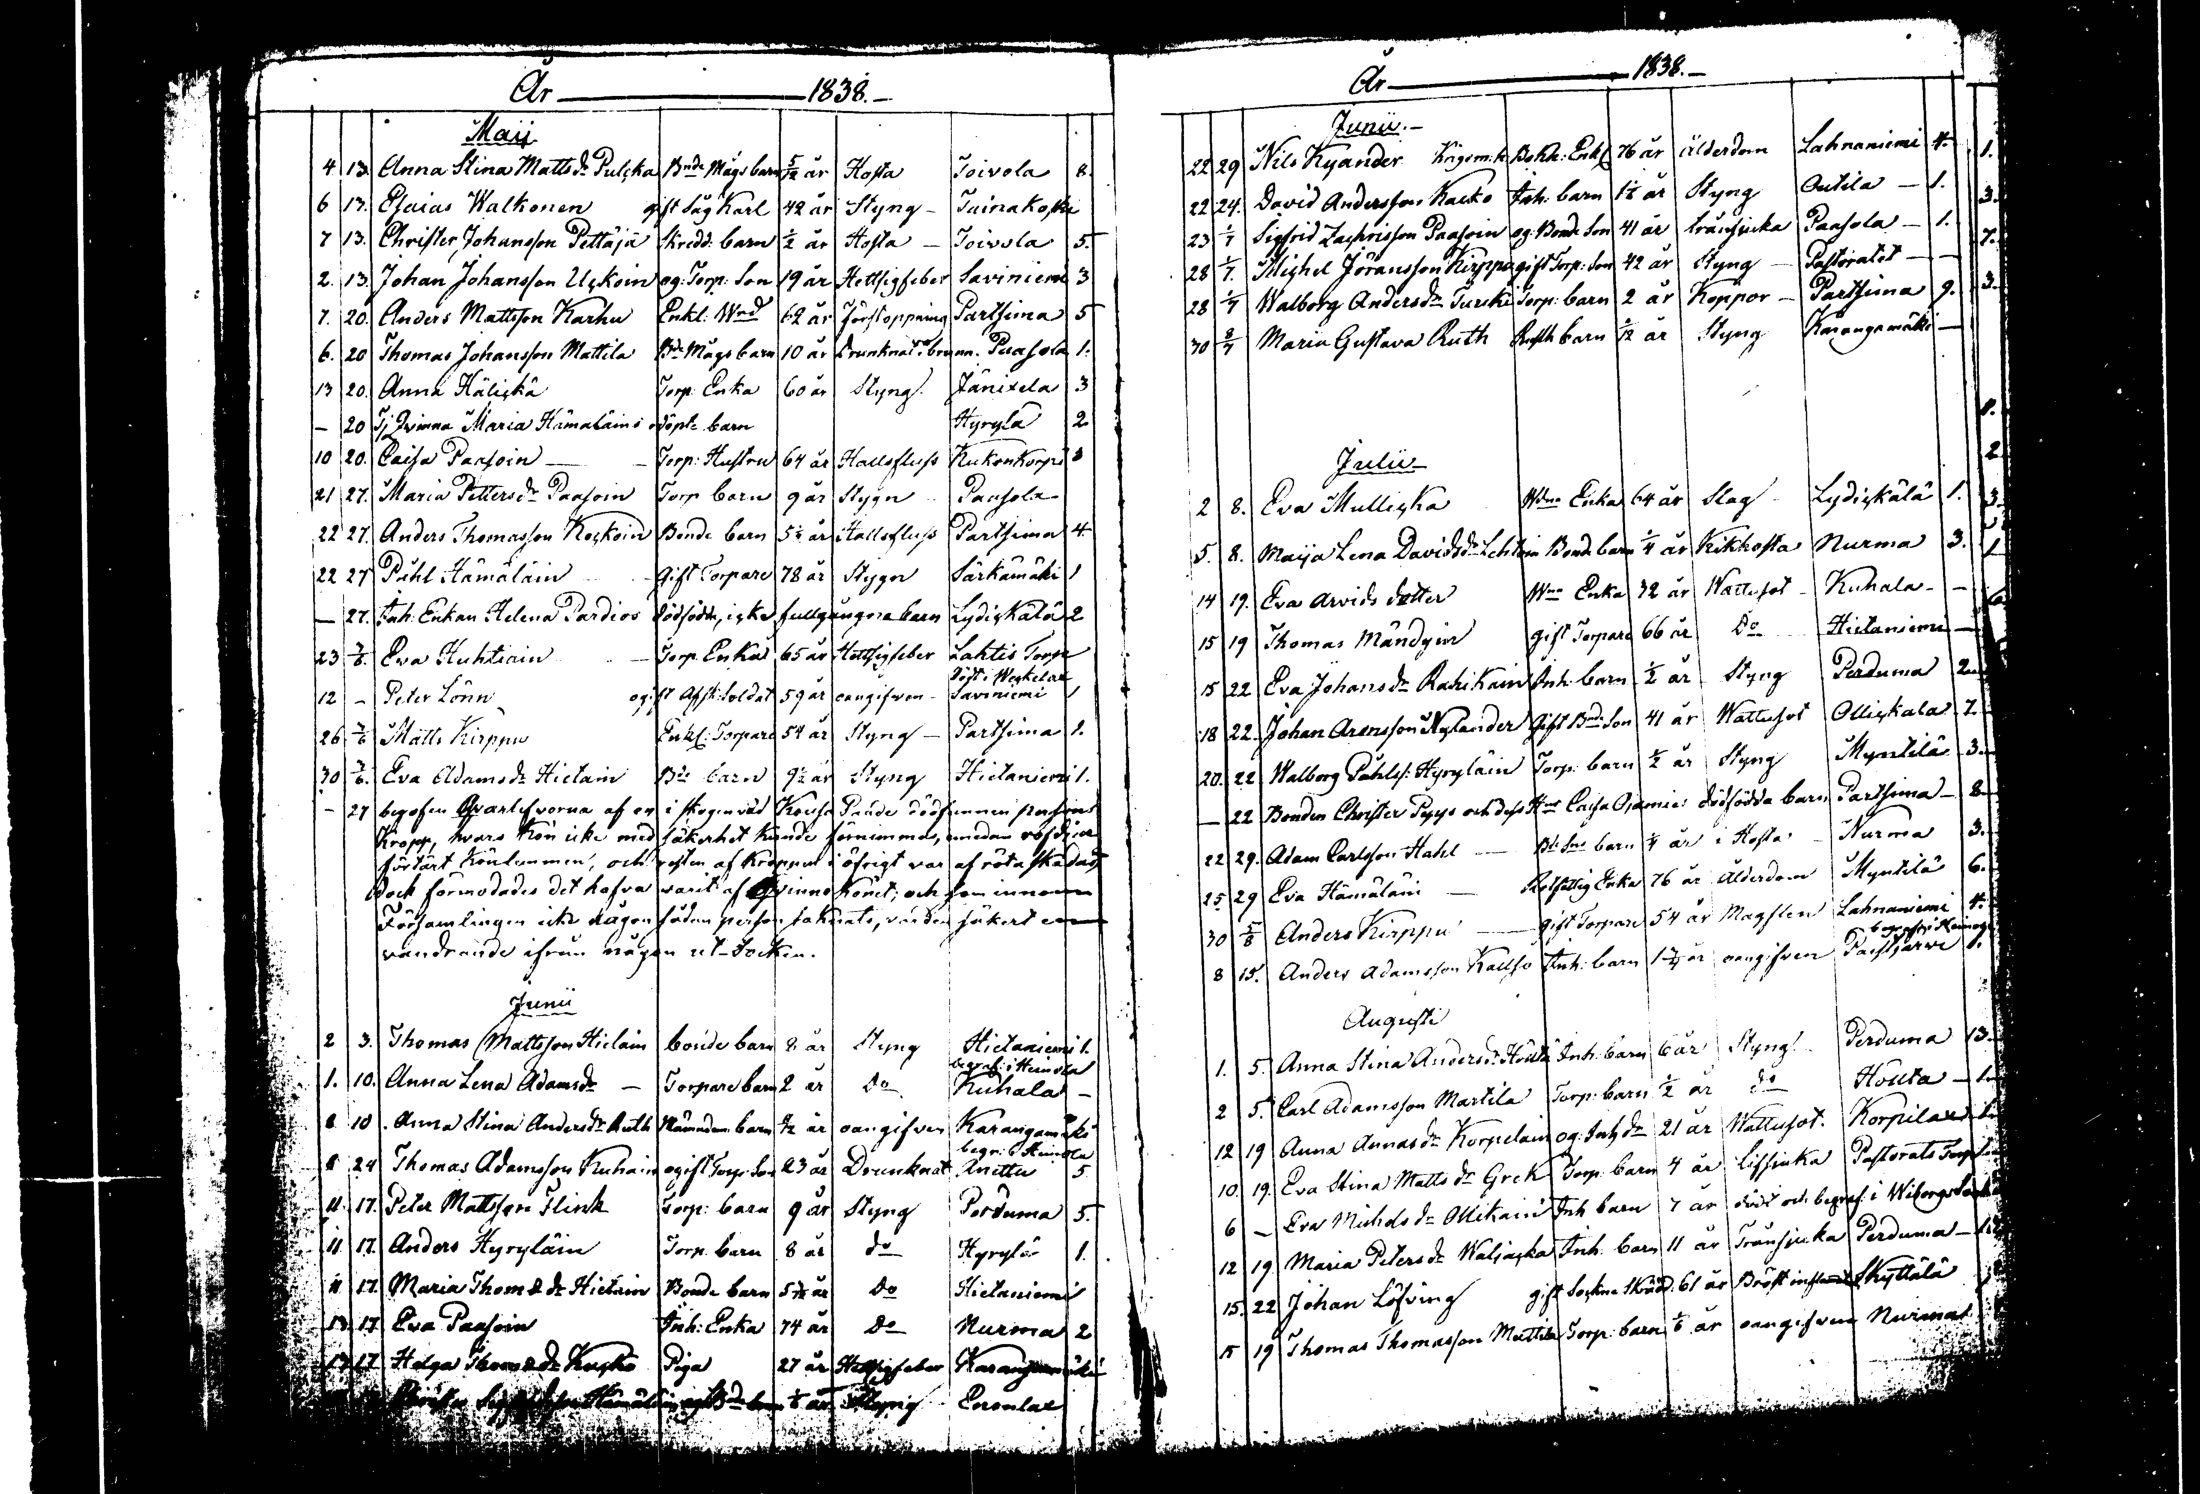 År 1838.
Maij
4 13. Anna Stina Mattsdr Pulcka Bnde Mågs barn 5/12 år Hosta Toivola 8.
6 13. Esaias Walkonen gift Såg Karl 42 år Styng Tainakoski
7 13. Christer Johansson Pettäjä Skredd: barn ½ år Hosta Toivola 5.
2. 13. Johan Johansson Uckoin og: Torp: Son 19 år Hettsigfeber Saviniemi 3
7. 20. Anders Mattsson Karhu Enkl: 62 år Förstoppning Partsima 5
6. 20 Thomas Johansson Mattila Bde Mågs barn 10 år Drunknat i brunn. Paasola 1.
13 20. Anna Häkickä Torp: Enka 60 år Styng Jänixela 3
– 20 Tj. Qvinna Maria Hämäläins odöpte barn Hyrylä 2
10 20. Caisa Paasoin Torp: Hustru 64 år Hallsfluss Kukonkorpi 3
21 27. Maria Pettersdr Paasoin Torp barn 9 år Stygn Paasola
22 27. Anders Thomasson Kockoin Bonde barn 5½ år Hallsfluss Partsima 4
22 27 Påhl Hämäläin gift Torpare 78 år Stygn Särkämäki 1
– 27. Inh: Enkan Helena Pardios dödfödda, icke fullgångna barn Lydickälä 2
23 3/6. Eva Huhtiain Torp. Enka 65 år Hettsigfeber Lahtis Torp
12 – Peter Lönn ogift Afsk: Soldat 59 år oangifven Saviniemi 1
26 3/6 Matts Kirppu Enkl: Torpare 54 år Styng Partsima 1.
30 3/6. Eva Adamsdr Hietain Bde barn 9½ år Styng Hietaniemi 1.
– 27 begofos Qvarlefvorna af en i skogen vid Kousa Pande död funnen persons
Kropp, hvars Kön icke med säkerhet kunde förnimmas, emedan rofdjur
förtärt Könlemmen, och resten af Kroppen i öfrigt var af röta skadad,
dock förmodades det hafva varit af Qvinno Könet; och som innom
Församlingen icke någon sådan person saknats, var den säkert en
vandrande ifrån någon ut-Socken.
Junii
2 3. Thomas Mattsson Hietain bonde barn 8 år Styng Hietaniemi 1.
begraf: i Heinola
1. 10. Anna Lena Adamsdr Torpare barn 2 år do Kuhala –
10. Anna Stina Andersdr Ruth barn oangifven Karangamäki
begr: i Heinola
24 Thomas Adamsson Kuhain ogift Torp: Son 23 år Drunknat Anttu 5
11. 17. Peter Mattsson Flink Torp: barn 9 år Styng Perduma 5.
11 17. Anders Hyryläin Torp. barn 8 år do Hyrylä 1.
11 17. Maria Thomasdr Hietain Bonde barn år do Hietaniemi
13. 17 Eva Paasoin Inh: Enka 74 år do Nurma 2
17 Helga Thomasdr Kucko Piga 27 år Hettsigfeber Karangamäki
Hämäläin år Styng
År 1838.
Junii.
22 29 Nils Kyander Enkl 76 år ålderdom Lahnaniemi 4.
22 24. David Andersson Kaeko Inh: barn 1½ år Styng Outila 1.
23 1/7 Sigfrid Zachrisson Paasoin og: Bonde Son 41 år tränsjuka Paasola 1.
28 1/7. Michel Jöransson Kirppu gift Torp: Son 42 år Styng Pastoratet –
28 1/7 Walborg Andersdr Turcki Torp: barn 2 år Koppor Partsima 9.
30 8/7 Maria Gustava Ruth barn år Styng Karangamäki –
Julii
2 8. Eva Mullicka Enka 64 år Slag Lydickälä 1.
5. 8. Maija Lena Davidsdr Lehtoin Bonde barn ¼ år Kikhosta Nurma 3.
14 19. Eva Arvids dotter Enka 32 år Wattusot Kuhala –
15 19 Thomas Mändyin gift Torpare 66 år Do Hietaniemi –
15 22 Eva Johansdr Rahikain Inh: barn ½ år Styng Perduma 2
18 22. Johan Aronsson Nylander Gift Bnde Son 41 år Wattusot Ollickala 7.
20. 22 Walborg Påhlsd: Hyryläin Torp: barn ½ år Styng Myntilä 3.
– 22 Bonden Christer Pyys och dess Hu Caisa Ojamies dödfödda barn Partsima 8
22 29. Adam Carlsson Hahl barn ¼ år i Hosta Nurma 3.
25 29 Eva Hämäläin Rotfattig Enka 76 år Ålderdom Myntilä 6.
30 5/8 Anders Kirppu gift Torpare 54 år Magsten Lahnaniemi 4.
8 15. Anders Adamsson Kallso Inh: barn år oangifven 1.
Augusti
1. 5. Anna Stina Andersdr Houta Inh: barn 6 år Styng Perduma 13.
2 5. Carl Adamsson Martila Torp: barn ½ år do Houta 1
12 19 Anna Annasdr Korpelain og: Inh: dr 21 år Wattusot. Korpilax
10 19. Eva Stina Mattsdr Grek Torp: barn 4 år Lissjuka Pastorats Torp
6 – Eva Michelsdr Ollikain Inh barn 7 år död och begraf: i Wiborgs
12 19 Maria Petersdr Waljacka Inh: barn 11 år Tränsjuka Perduma
15. 22 Johan Löfving gift Sockne Skräd. 61 år Bröst inflam Skyttälä
15 19 Thomas Thomasson Mattila Torp: barn år oangifven Nurma 1.